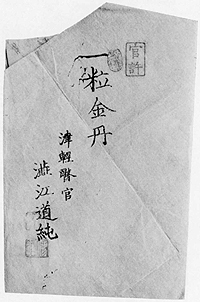 官許
一粒金丹
津軽醫官
澁江道純